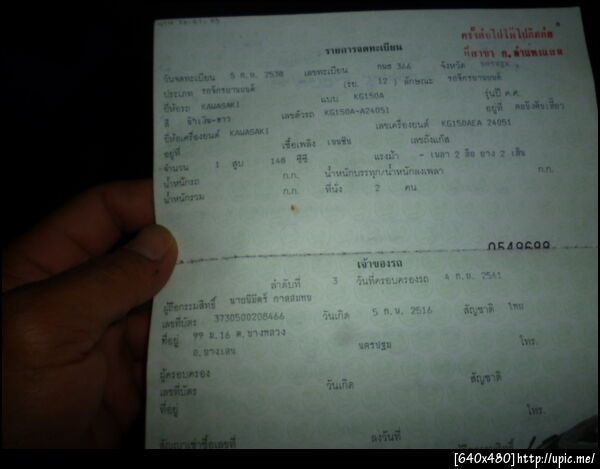 ครั้งต่อไปให้ไปติดต่อ
ที่สาขา อ.กำแพงแสน
รายการจดทะเบียน
วันจดทะเบียน 5 ก.ย. 2538 เลขทะเบียน กนธ 366 จังหวัด นครปฐม
ประเภท รถจักรยานยนต์ (รย. 12 ) ลักษณะ รถจักรยานยนต์
ยี่ห้อรถ KAWASAKI แบบ KG150A รุ่นปี ค.ศ.
สี น้ำเงิน-ขาว เลขตัวรถ KG150A-A24051 อยู่ที่ คอรถ
ยี่ห้อเครื่องยนต์ KAWASAKI เลขเครื่องยนต์ KG150AEA 24051
อยู่ที่ เชื้อเพลิง เบนซิน เลขถังแก๊ส
จำนวน 1 สูบ 148 ซีซี แรงม้า - เพลา 2 ล้อ ยาง 2 เส้น
น้ำหนักรถ ก.ก. น้ำหนักบรรทุก/น้ำหนักลงเพลา ก.ก.
น้ำหนักรวม ก.ก. ที่นั่ง 2 คน
0549699
เจ้าของรถ
ลำดับที่ 3 วันที่ครอบครองรถ 4 ก.ย. 2541
ผู้ถือกรรมสิทธิ์ นายนิมิตร์
เลขที่บัตร 3730500208466 วันเกิด 5 ก.พ. 2516 สัญชาติ ไทย
ที่อยู่ 99 ม.16 ต.บางหลวง
อ.บางเลน นครปฐม โทร.
ผู้ครอบครอง
เลขที่บัตร วันเกิด สัญชาติ
ที่อยู่ โทร.
สัญญาเช่าซื้อเลขที่ ลงวันที่
[640x480]http://upic.me/